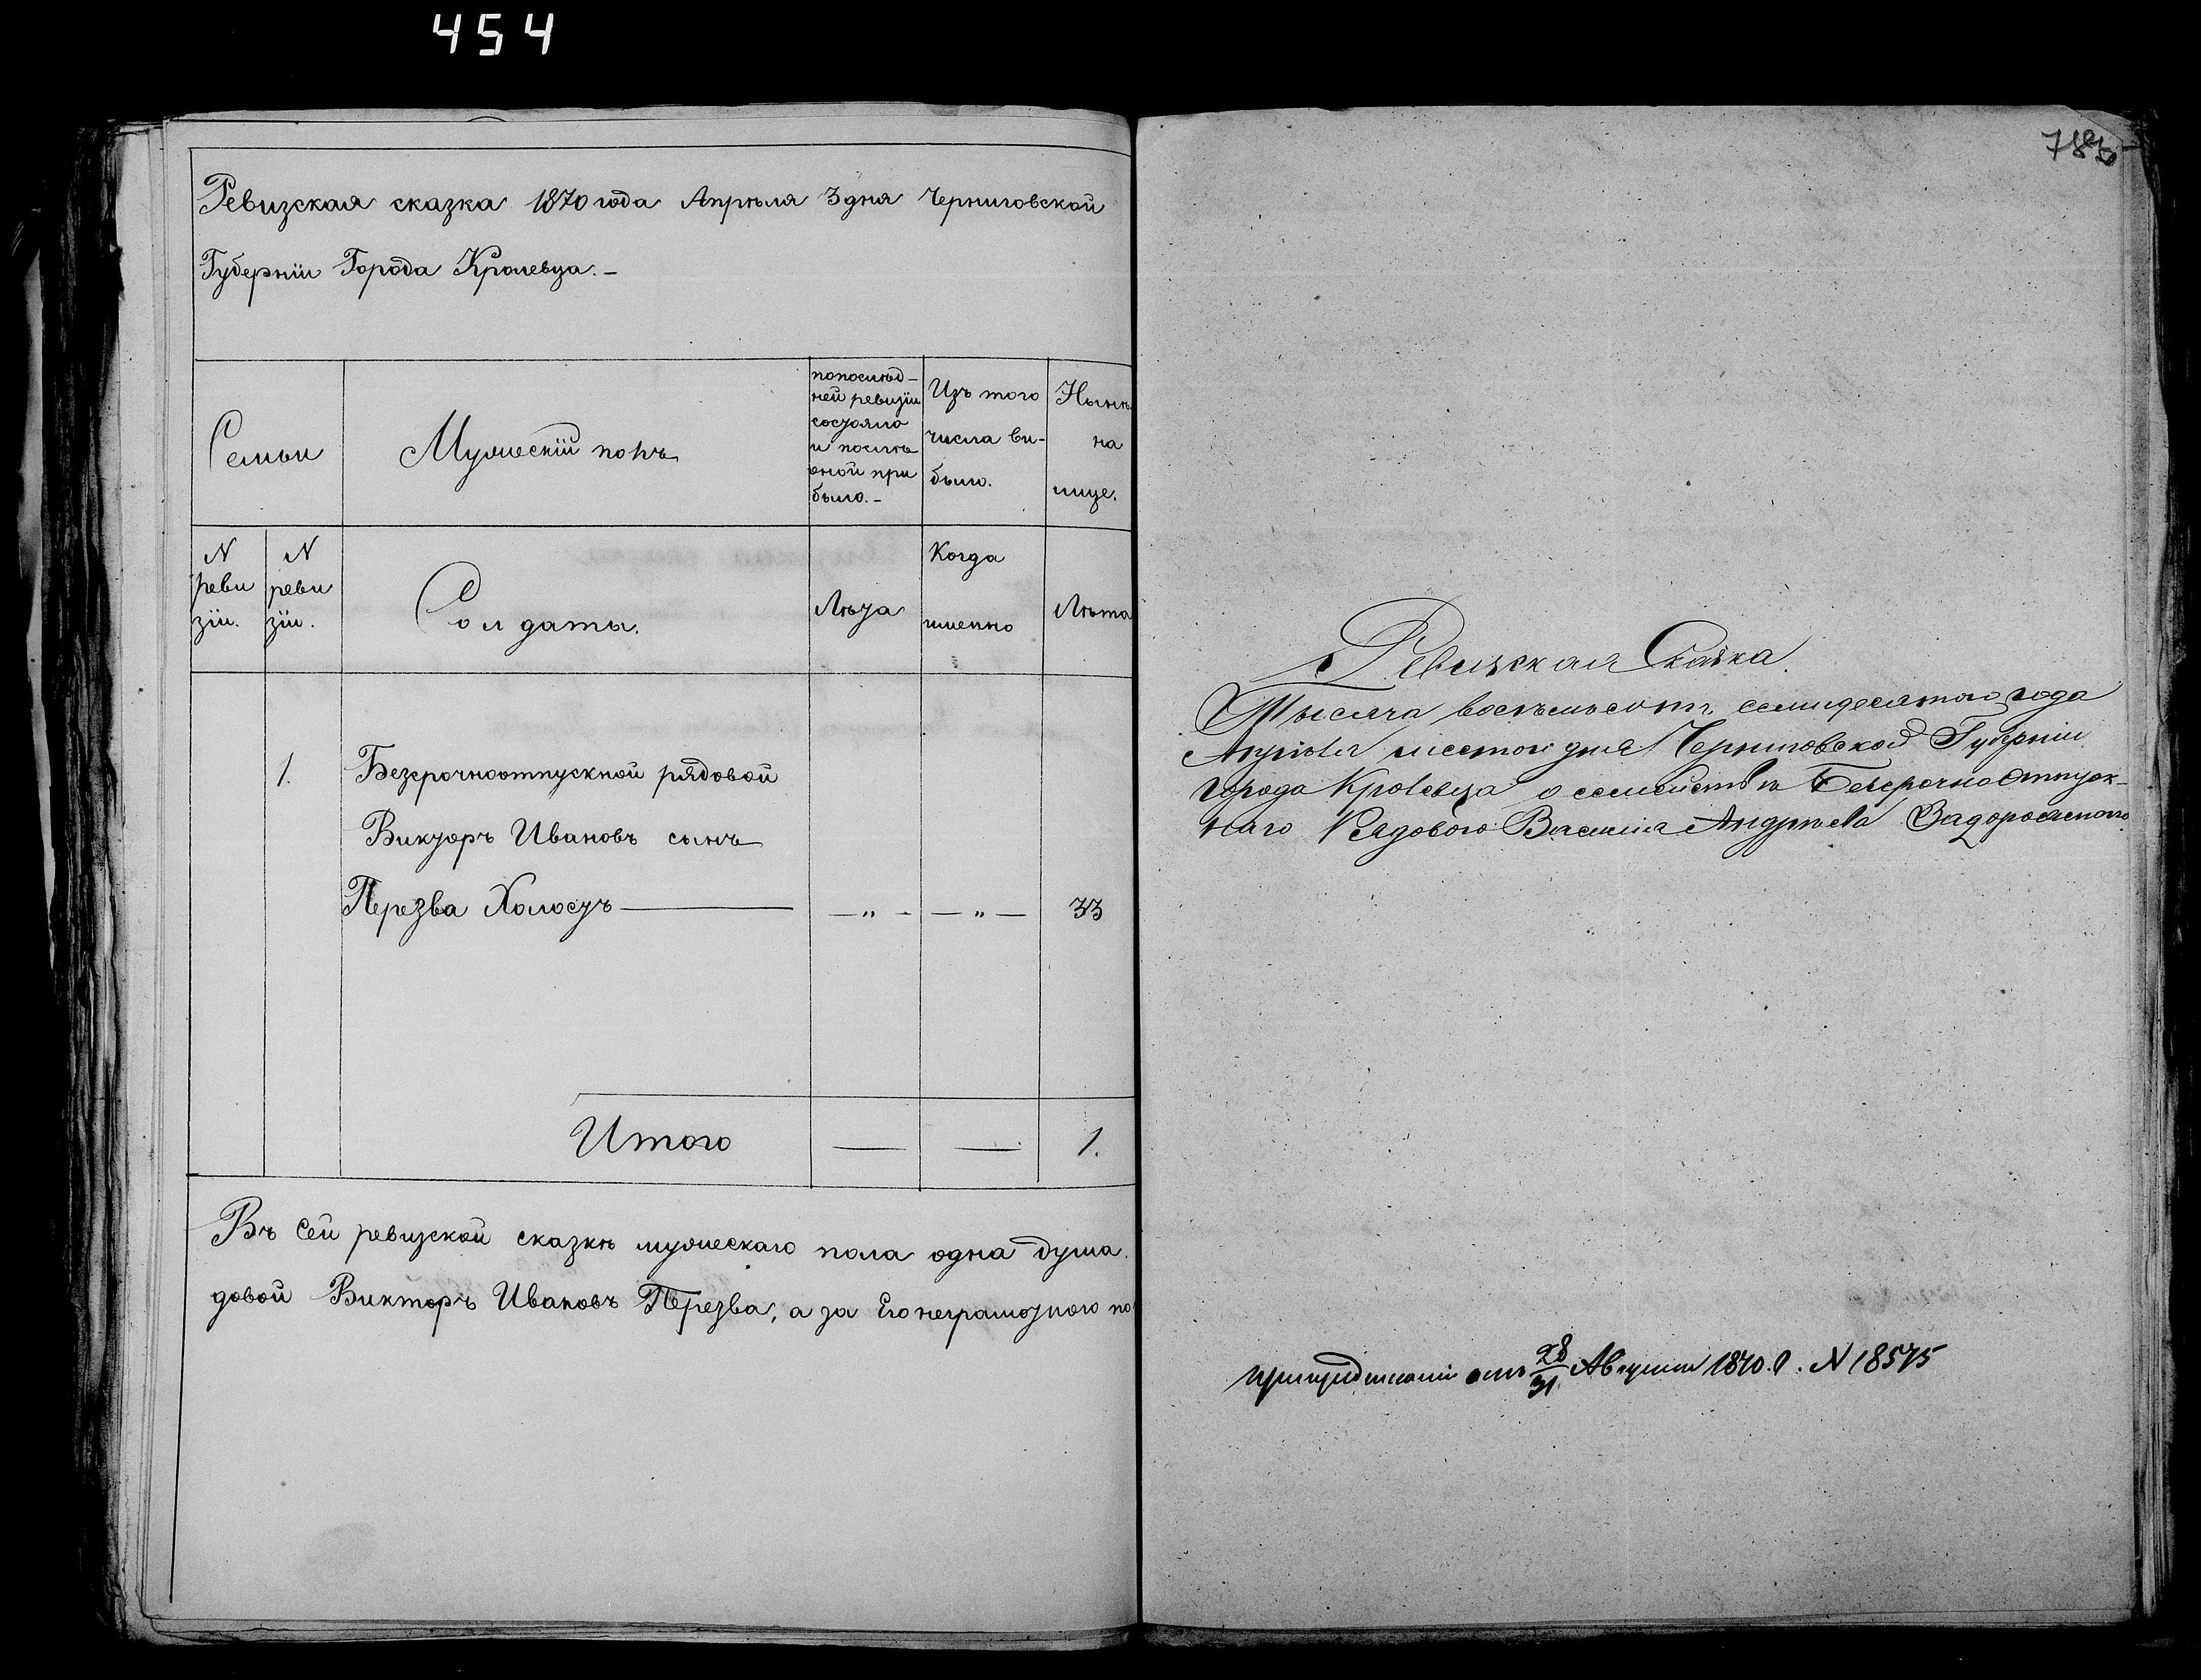 454
Ревизская сказка 1870 года Апрѣля 3 дня Черниговской
Губерніи Города Кролевца.-
Семьи
Мужескій полъ
попослѣд-
ней ревизіи
состояло
и послѣ
оной при
было.-
Изъ того
числа вы-
было.
Нынѣ
на
лице.
N
реви
зіи.
N
реви
зіи.
Солдаты.
Лѣта
Когда
именно
Лѣта
1. Безсрочноотпускной рядовой
Викторъ Ивановъ сынъ
Перезва Холостъ — „ - — „ — 33
Итого — — 1.
Въ сей ревизской сказкѣ мужескаго пола одна душа.
довой Викторъ Ивановъ Перезва, а за Его неграмотного по
Ревизская Сказка.
Тысяча восемьсотъ семидесятого года
Апрѣля шестого дня Черниговской Губерніи
города Кролевца о семействѣ Безсрочно Отпуск-
наго Рядового Василія Андрѣева Задорожнаго
отъ 28/31 Августа 1870. г. N 18575